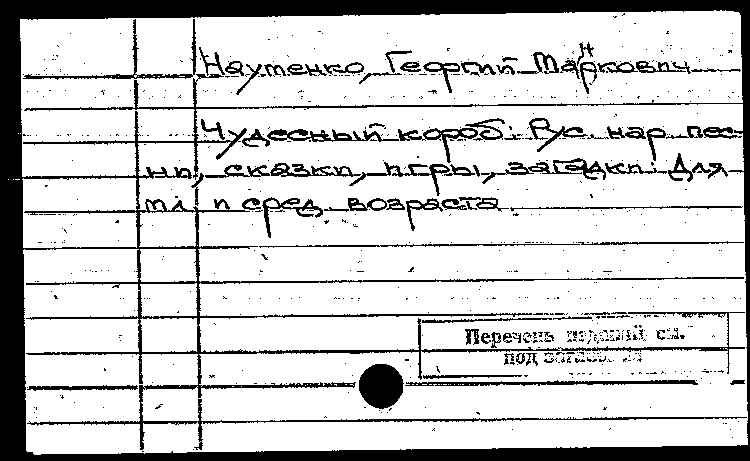 Наутенко, Георгий Маркович
Чудесный короб: Рус. нар. пес-
ни, сказки, игры, загадки: Для
мл. и сред. возраста
Перечень изданий см.
под